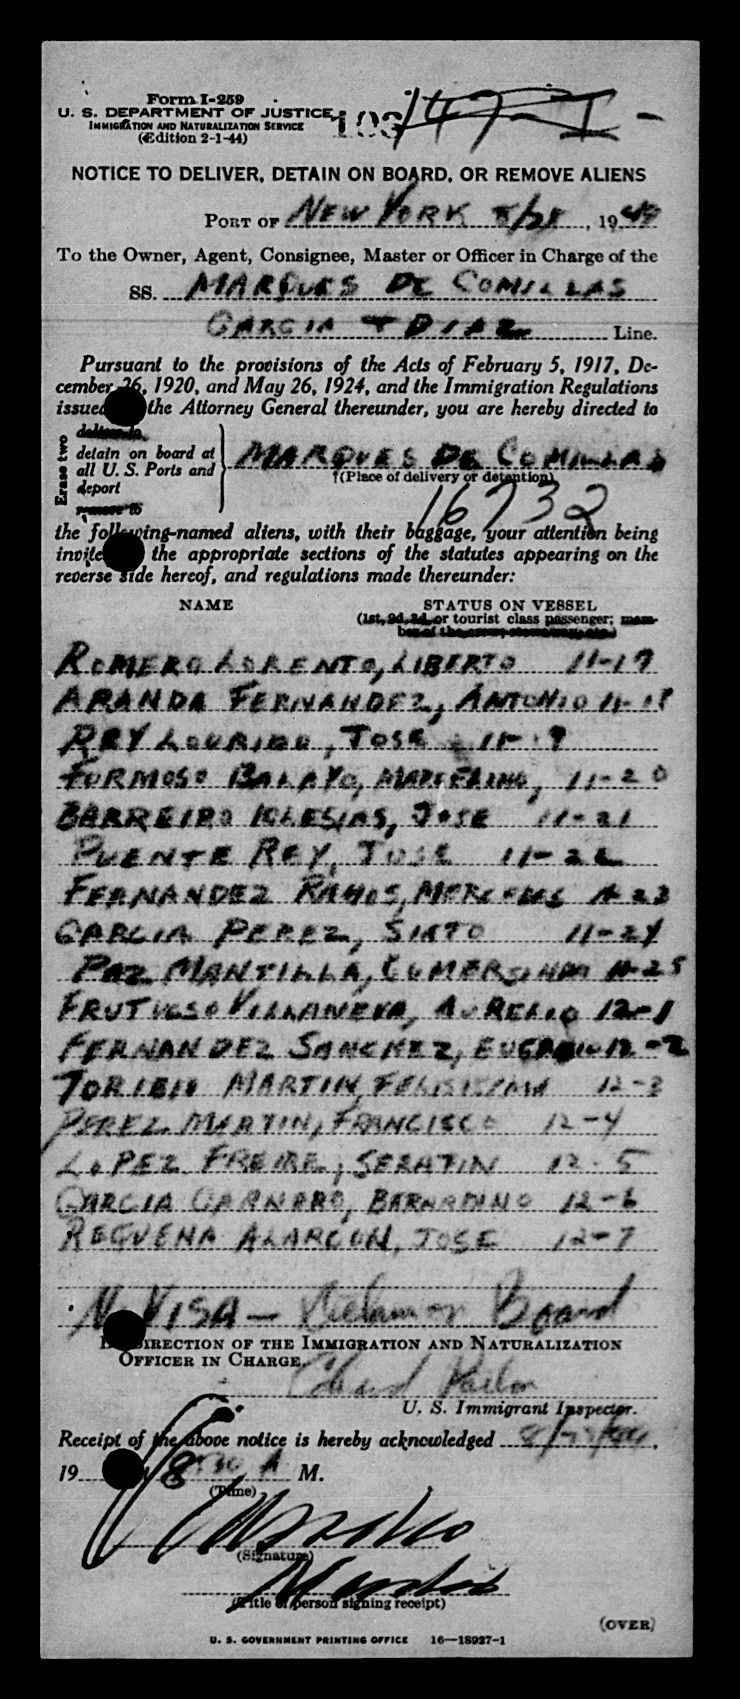 Form I-259
U. S. DEPARTMENT OF JUSTICE
IMMIGRATION AND NATURALIZATION SERVICE
(Edition 2-1-44)
NOTICE TO DELIVER, DETAIN ON BOARD, OR REMOVE ALIENS
PORT OF NEW YORK 8/28, 1949
To the Owner, Agent, Consignee, Master or Officer in Charge of the
SS. MARQUES DE COMILLAS
GARCIA + DIAZ Line.
Pursuant to the provisions of the Acts of February 5, 1917, De-
cember 26, 1920, and May 26, 1924, and the Immigration Regulations
issued the Attorney General thereunder, you are hereby directed to
Erase two
deliver to
detain on board at
all U. S. Ports and
deport
remove to
MARQUES DE COMILLAS
(Place of delivery or detention)
16732
the following-named aliens, with their baggage, your attention being
invited the appropriate sections of the statutes appearing on the
reverse side hereof, and regulations made thereunder:
NAME STATUS ON VESSEL
(1st, 2d, 3d, or tourist class passenger; mem-
ber of the crew, stowaway, etc.)
ROMERO LORENTO, LIBERTO 11-17
ARANDA FERNANDEZ, ANTONIO 11-18
REY LOURIDO, JOSE 11-19
FORMOSO BALAYO, MARCELINO, 11-20
BARREIRO IGLESIAS, JOSE 11-21
PUENTE REY, JOSE 11-22
FERNANDEZ RAMOS, MERCEDES 11-23
GARCIA PEREZ, SIXTO 11-24
PAZ MANTILLA, GUMERSINDA 11-25
FRUTUOSO VILLANEVA, AURELIO 12-1
FERNANDEZ SANCHEZ, EUGENIO 12-2
TORIBIO MARTIN, FELISISIMA 12-3
PEREZ MARTIN, FRANCISCO 12-4
LOPEZ FREIRE, SERAFIN 12-5
GARCIA GARNERO, BERNARDINO 12-6
REGUENA ALARCON, JOSE 12-7
VISA — Board
DIRECTION OF THE IMMIGRATION AND NATURALIZATION
OFFICER IN CHARGE.
U. S. Immigrant Inspector.
Receipt of the above notice is hereby acknowledged
19 8 30 A M.
(Time)
(Signature)
(Title of person signing receipt)
(OVER)
U. S. GOVERNMENT PRINTING OFFICE 16—18927-1